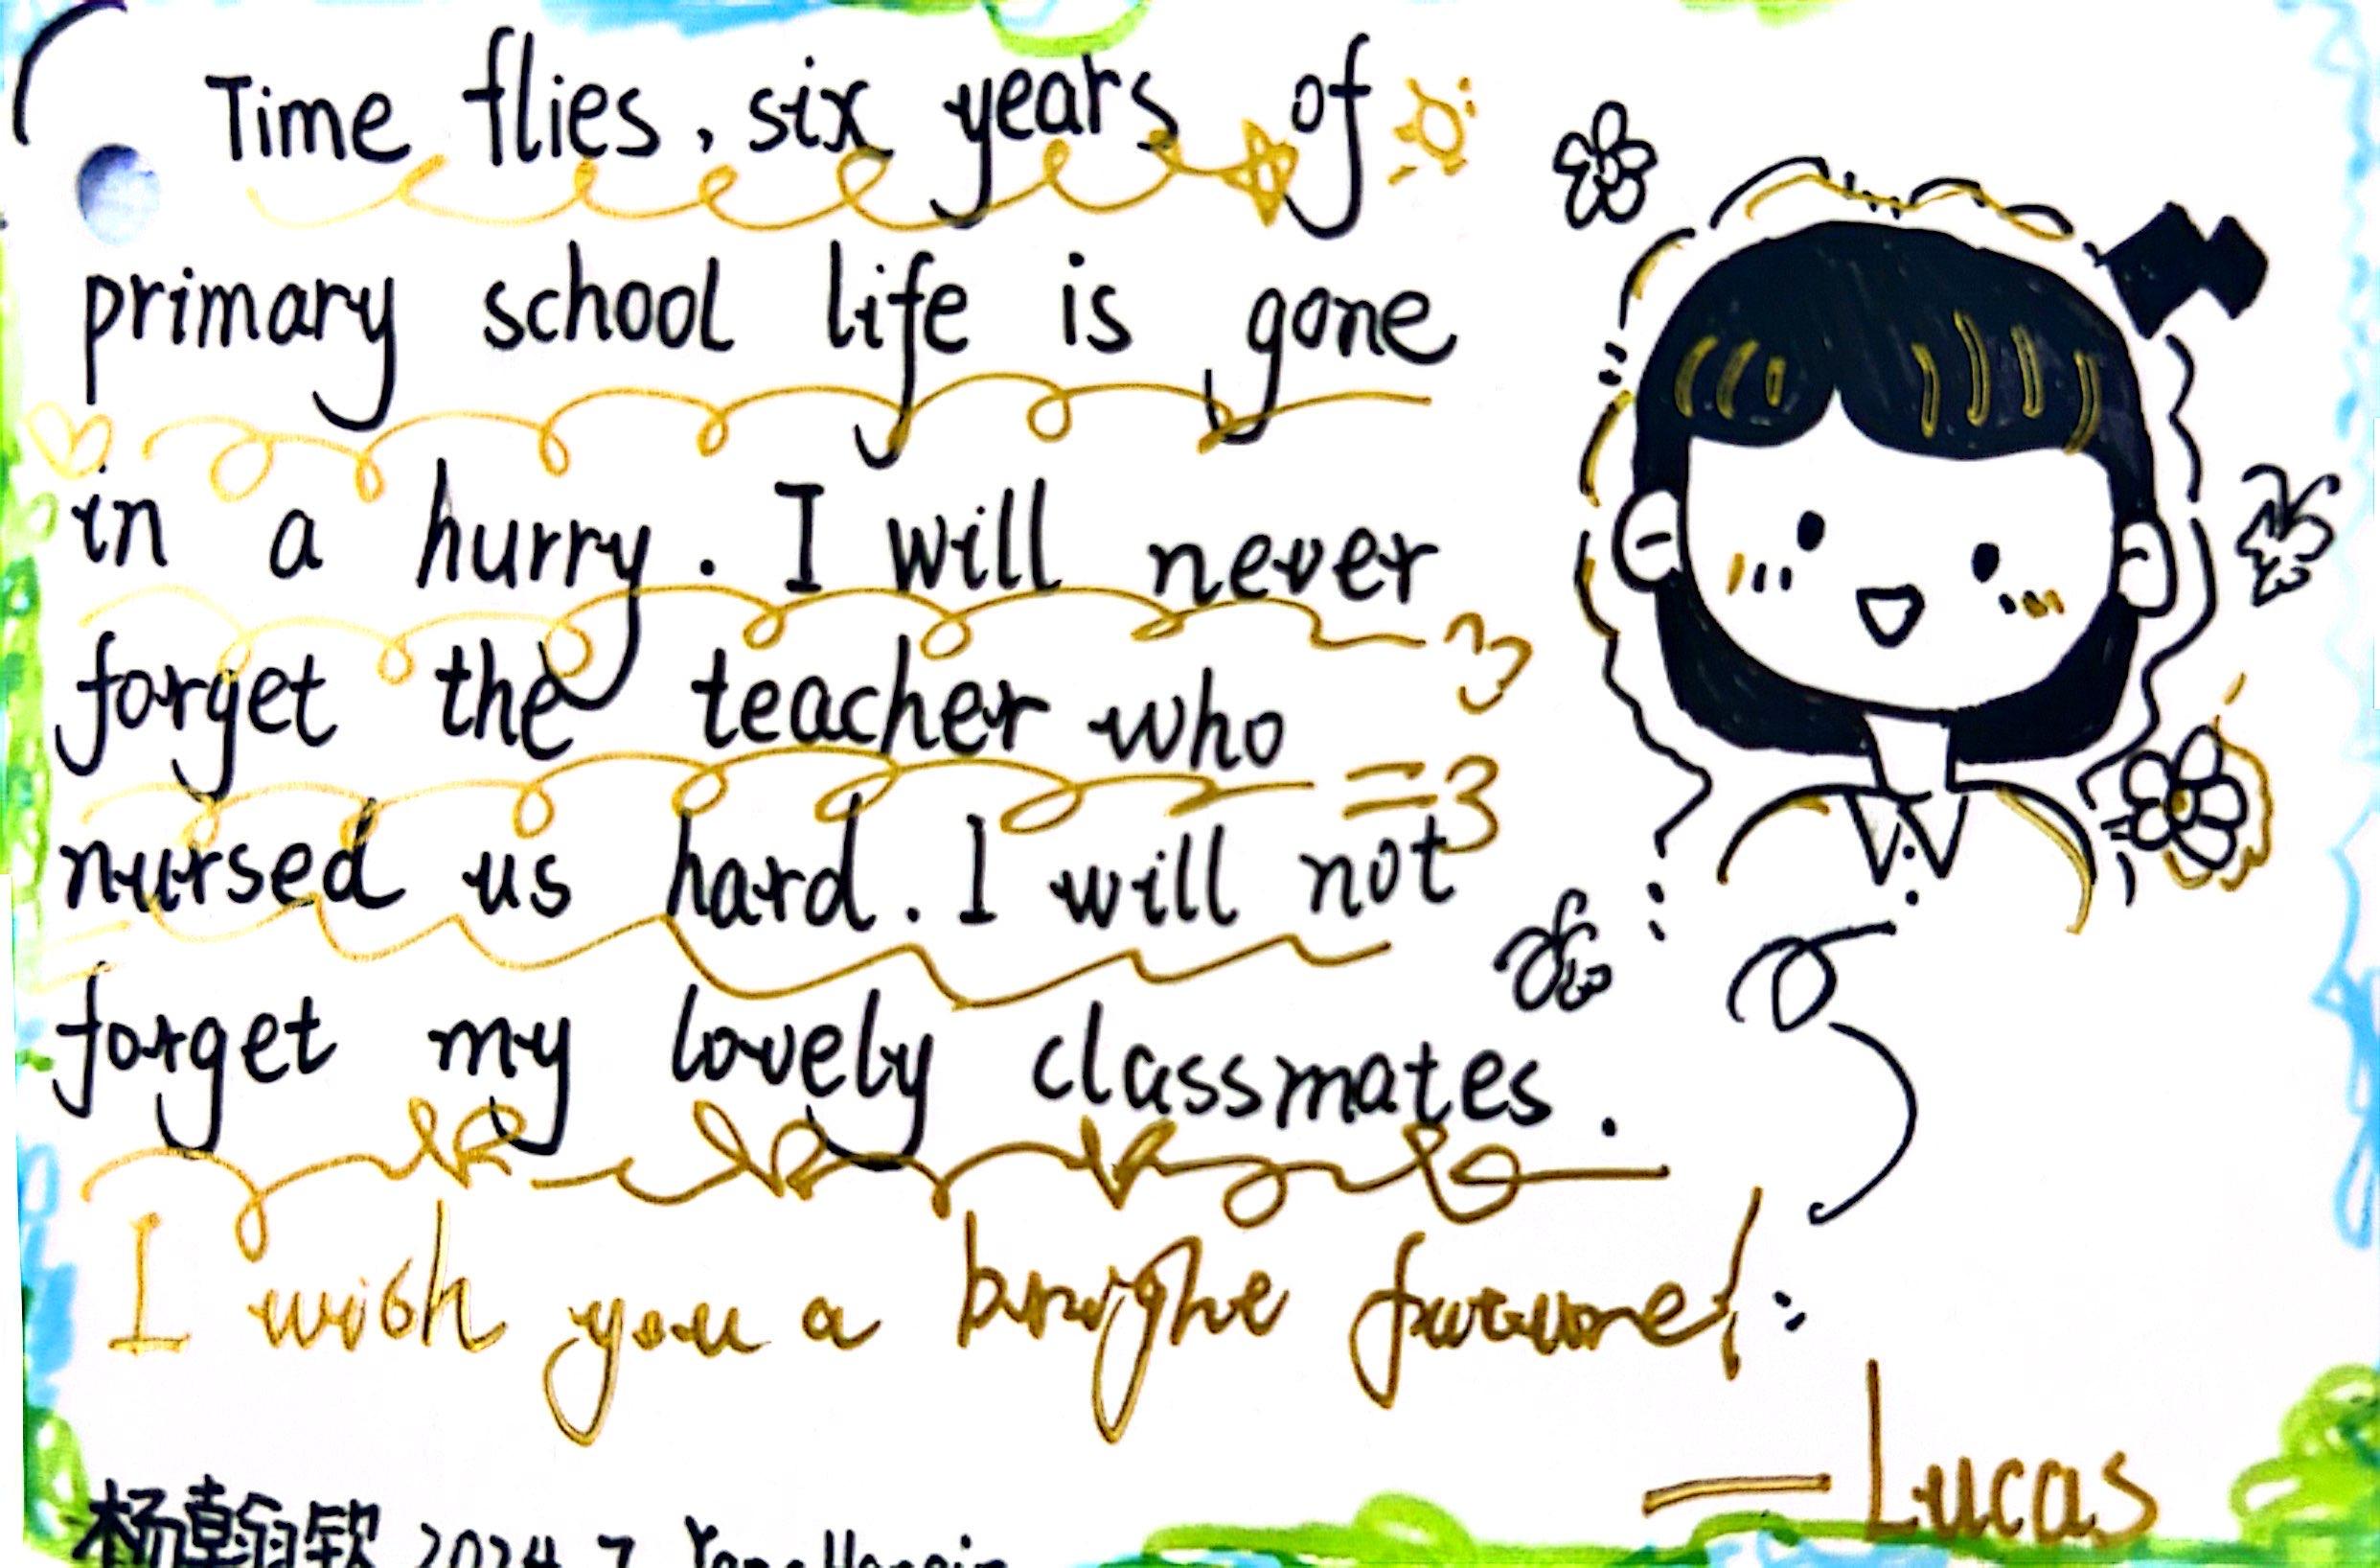 Time flies, six years of
primary school life is gone
in a hurry. I will never
forget the teacher who
nursed us hard. I will not
forget my lovely classmates.
I wish you a bright future!
—Lucas
杨瀚钦 2024.7 Yang Hanqin